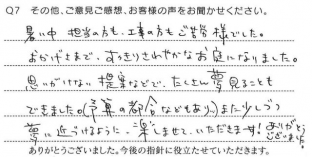 Q7 その他、ご意見ご感想、お客様の声をお聞かせください。
暑い中 担当の方も、工事の方もご苦労様でした。
おかげさまで、すっきりさわやかなお庭になりました。
思いがけない提案などで、たくさん夢見ることも
できました。(予算の都合などもあり、)また少しづつ
夢に近づけるように、楽しませて、いただきます! ありがとうございました。
ありがとうございました。今後の指針に役立たせていただきます。